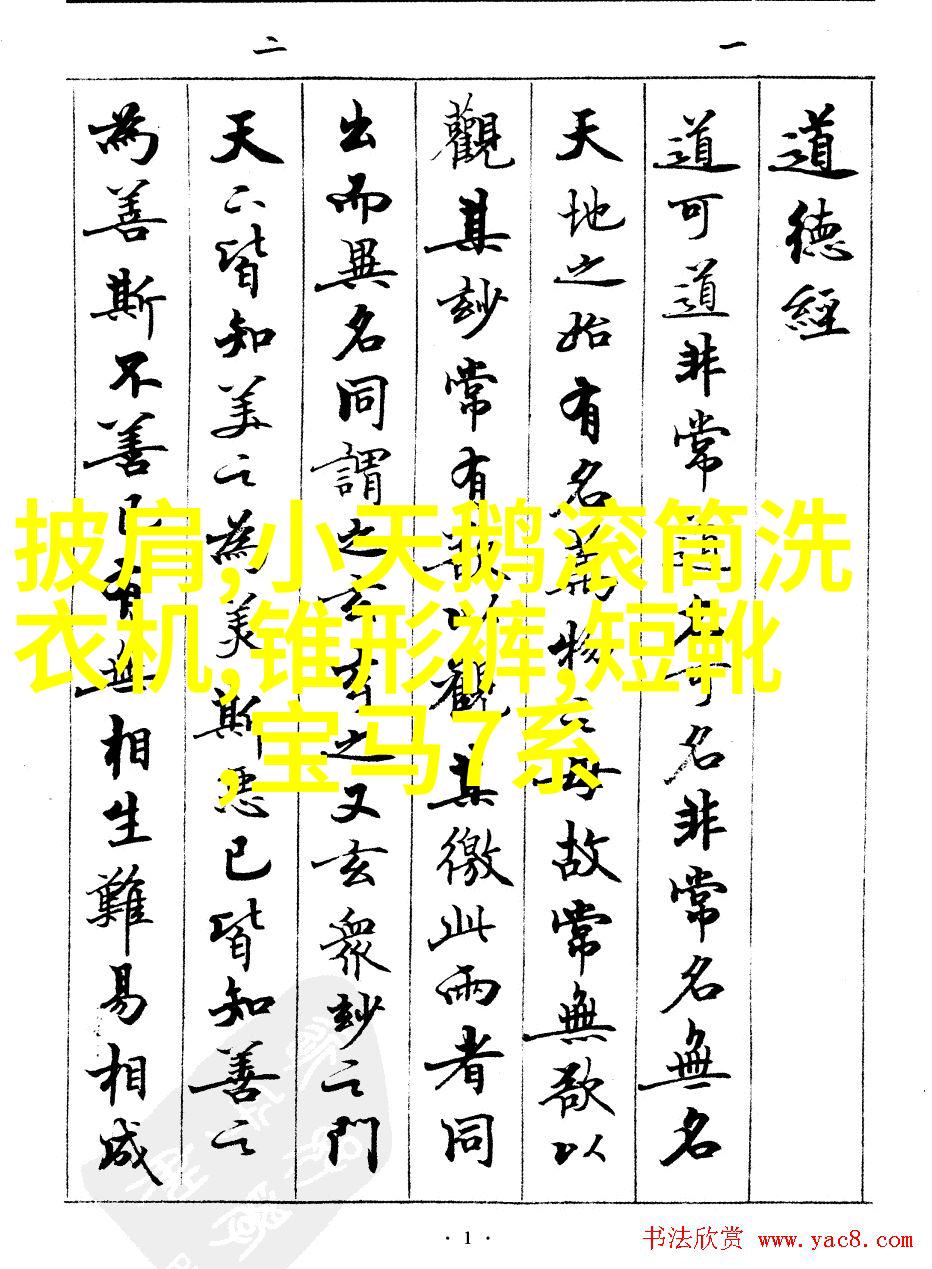 一
二
道德經
道可道非常道名可名非常名無名
天地之始有名萬物之母故常無欲以
觀其玅常有欲以觀其徼此兩者同
出而異名同謂之玄玄之又玄眾玅之門
天下皆知美之為美斯惡已皆知善之
為善斯不善已有無相生難易相成
披肩,小天鹅滚筒洗
衣机,锥形裤,短靴
,宝马7系
· 1 ·
书法欣赏 www.yac8.com